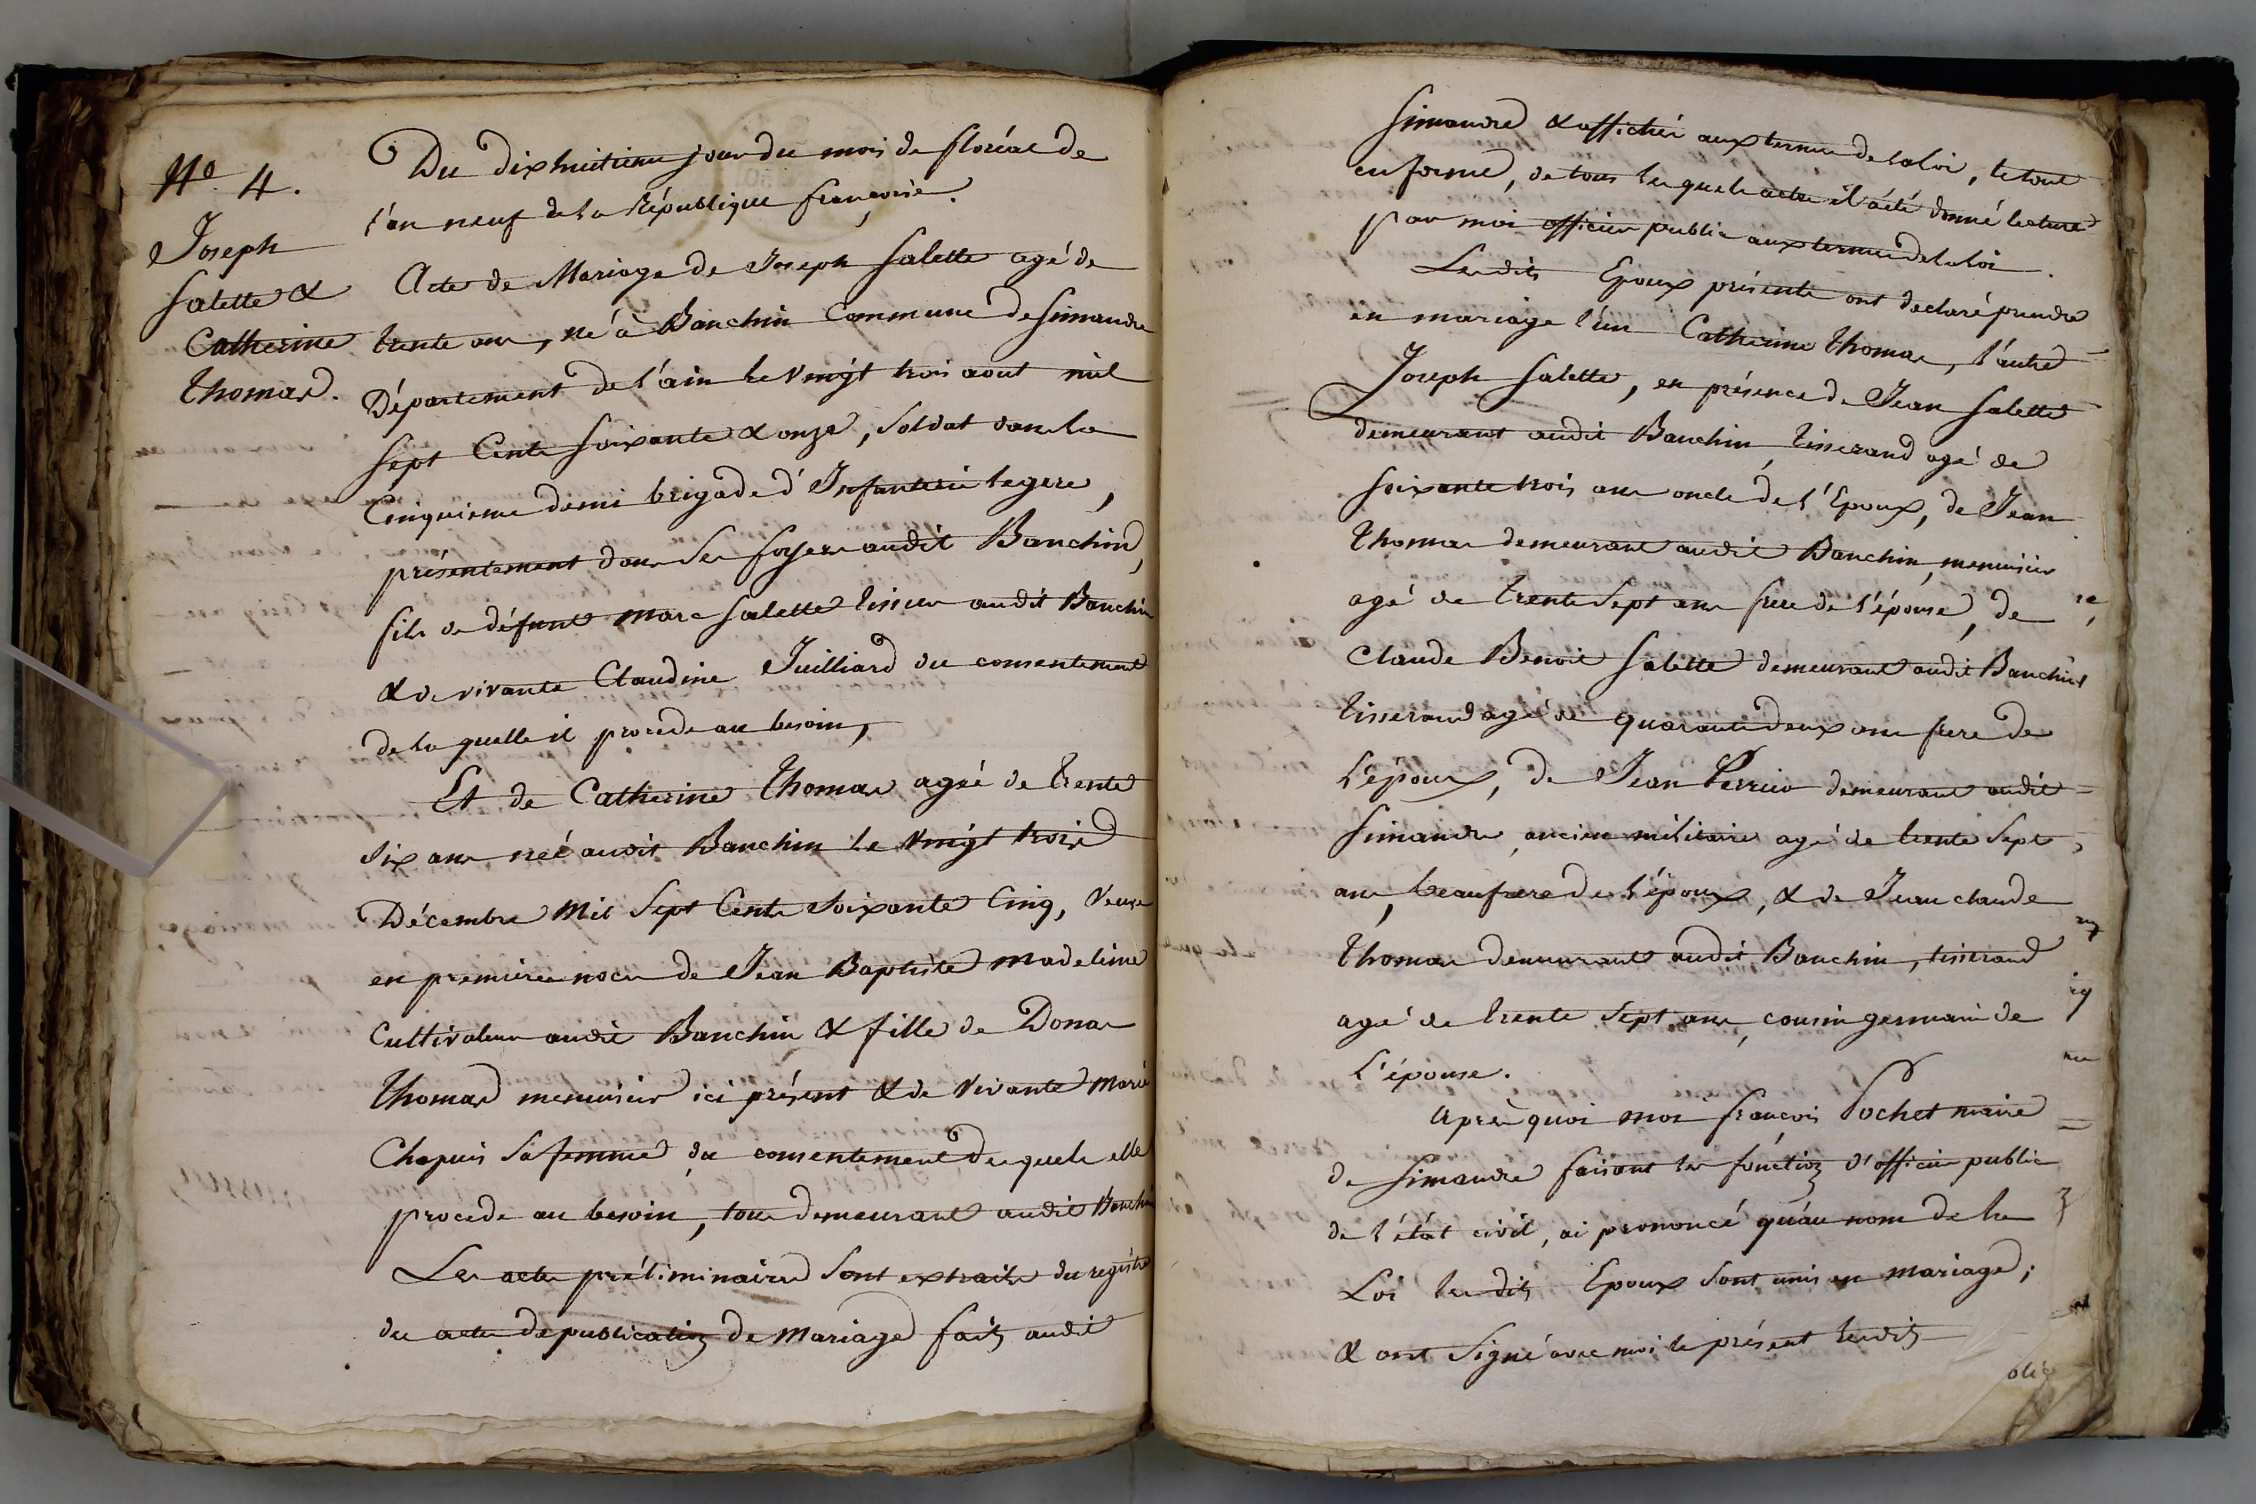 No. 4.
Joseph
Salette &
Catherine
Thomas.
Du dixhuitieme jour du mois de floréal de
l'an neuf de la République françoise.
Acte de Mariage de Joseph Salette agé de
trente ans, né à Banchin Commune de Simandre
Département de l'ain le vingt trois aout mil
sept Cents soixante & onze, soldat dans la
Cinquieme demi brigade d'Infanterie legere,
présentement dans ses foyers audit Banchin,
fils de défunt Marc Salette tissier audit Banchin
& de vivante Claudine Juilliard du consentement
de laquelle il procede au besoin,
Et de Catherine Thomas agée de trente
six ans née audit Banchin le vingt trois
Décembre Mil Sept Cents soixante Cinq, veuve
en premieres noces de Jean Baptiste Madeleine
Cultivateur audit Banchin & fille de Donas
Thomas menuisier ici présent & de vivante Marie
Chapuis sa femme du consentement desquels elle
procede au besoin, tous demeurant audit Banchin
Les actes préliminaires sont extraits du registre
des actes de publication de Mariage faits audit
Simandre & affichés aux termes de la loi, le tout
en forme, de tous lesquels actes il a été donné lecture
par moi officier public aux termes de la loi.
Lesdits Epoux présents ont declaré prendre
en mariage l'un Catherine Thomas, l'autre
Joseph Salette, en présence de Jean Salette
demeurant audit Banchin, tisserand agé de
soixante trois ans oncle de l'Epoux, de Jean
Thomas demeurant audit Banchin, menuisier
agé de trente sept ans frere de l'épouse, de
Claude Benoit Salette demeurant audit Banchin
tisserand agé de quarante deux ans frere de
l'époux, de Jean Perrier demeurant audit
Simandre, ancien militaire agé de trente sept
ans, beaufrere de l'époux, & de Jean claude
Thomas demeurant audit Banchin, tisserand
agé de trente sept ans, cousin germain de
l'épouse.
Après quoi moi françois Pochet maire
de Simandre faisant les fonctions d'officier public
de l'état civil, ai prononcé qu'au nom de la
Loi lesdits Epoux sont unis en mariage;
& ont signé avec moi le présent lesdits